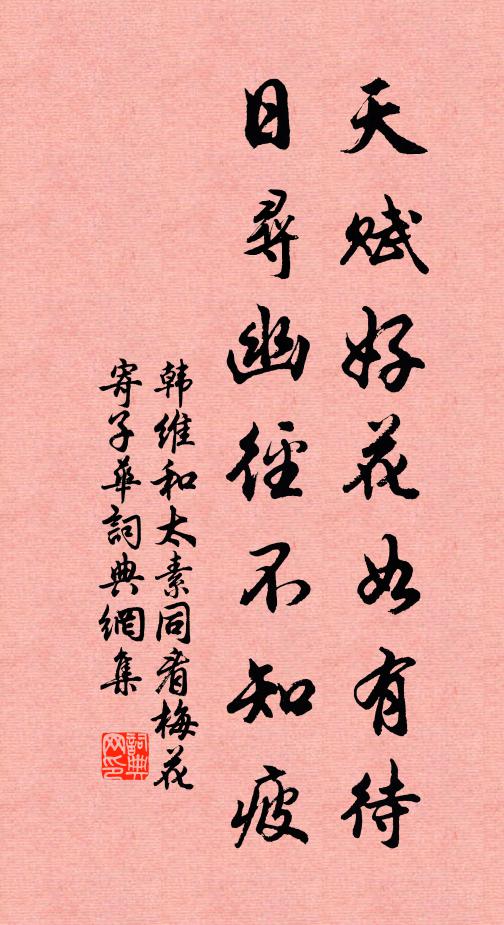 天赋好花如有待
日尋幽徑不知疲
韩维和太素同看梅花
寄子華詞典網集
詞典
网印